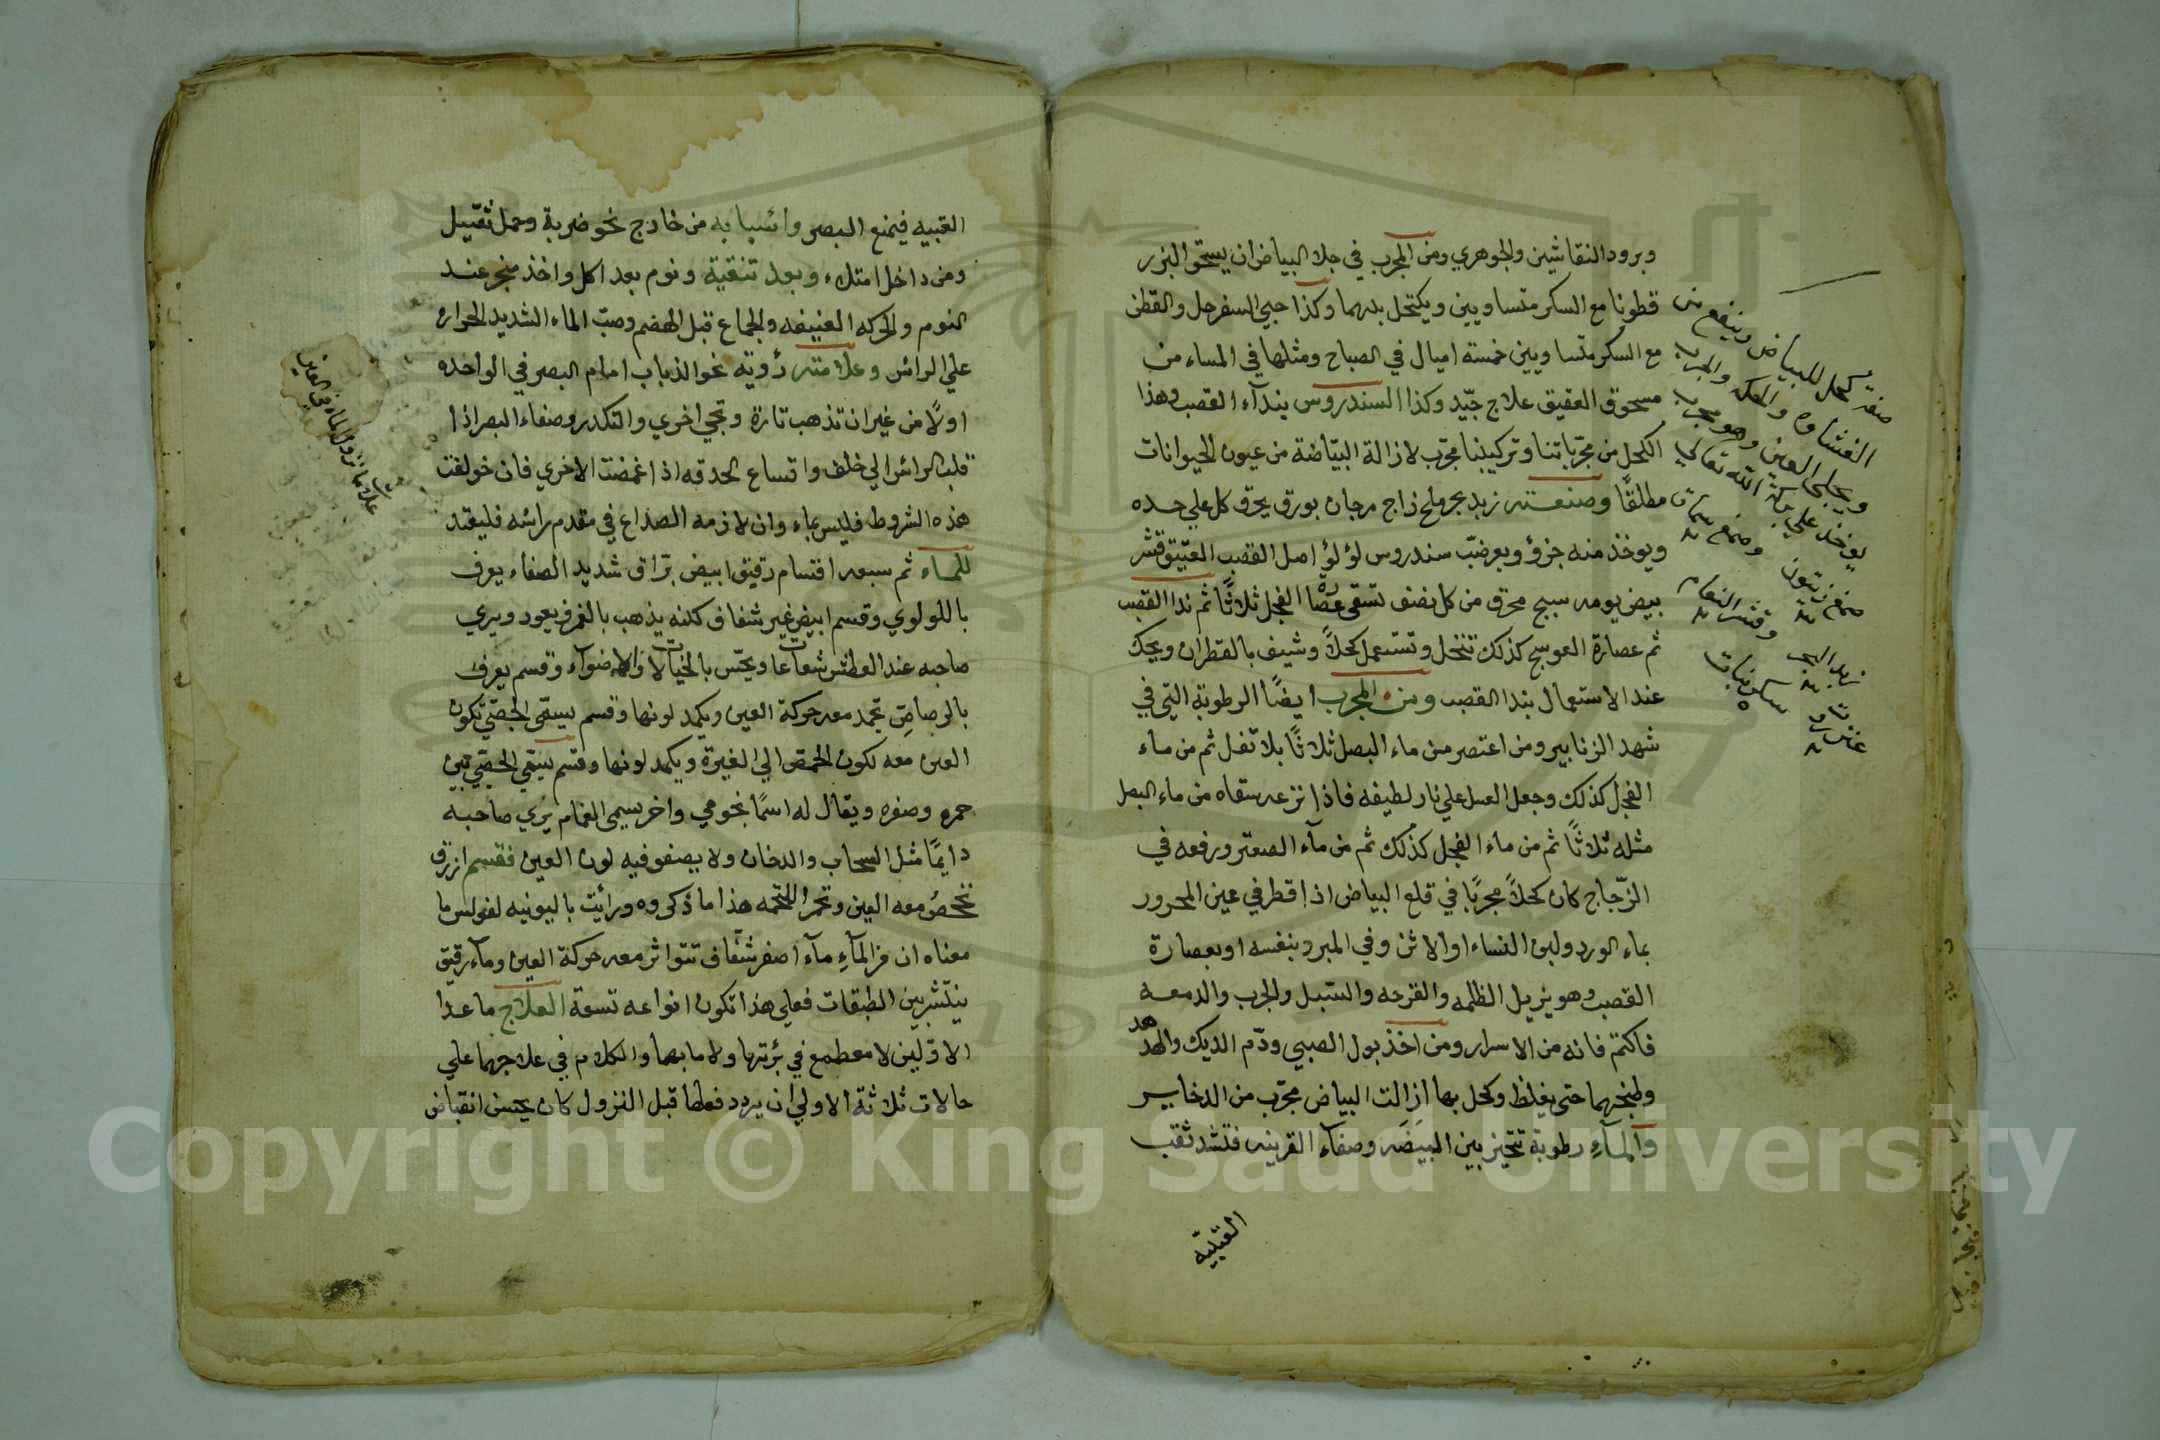 وبرود النقاشين والجوهري ومن المجرب في جلا البياض ان يسحق البزر
قطونا مع السكر متساويين ويكتحل بهما وكذا حبي السفرجل والقطن
مع السكر متساويين خمسة اميال في الصباح ومثلها في المساء من
مسحوق العقيق علاج جيد وكذا السندروس بندآء القصب وهذا
الكحل من مجرباتنا وتركيبنا مجرب لازالة البياضة من عيون الحيوانات
مطلقًا وصنعته زبد بحر ملح زاج مرجان بورق يحرق كل على حده
ويوخذ منه جزؤ وبعر ضب سندروس لؤلؤ اصل القصب العتيق قشر
بيض يومه سبج محرق من كل نصف تسقى عصارة الفجل ثلاثًا ثم ندا القصب
ثم عصارة العوسج كذلك تنخل وتستعمل كحلاً وشيف بالقطران ويحك
عند الاستعمال بندا القصب ومن المجرب ايضًا الرطوبة التي في
شهد الزنابير ومن اعتصر من ماء البصل ثلاثًا بلا تفل ثم من ماء
الفجل كذلك وجعل العسل علي نار لطيفه فاذا نزعه سقاه من ماء البصل
مثله ثلاثًا ثم من ماء الفجل كذلك ثم من مآء الصعتر ورفعه في
الزجاج كان كحلاً مجربًا في قلع البياض اذا قطر في عين المحرور
بماء الورد ولبن النساء او الاتن وفي المبرد بنفسه او بعصارة
القصب وهو يزيل الظلمه والقرحه والسبل والجرب والدمعه
فاكتم فانه من الاسرار ومن اخذ بول الصبي ودم الديك والهدهد
وطبخهما حتى يغلظ وكحل بها ازالت البياض مجرب من الدخاير
والمآءِ رطوبة تتحيز بين البيضه وصفآء القرينه فتشد ثقب
القبيه
صفة كحل للبياض وينفع من
الغشاوه والحكه والجرب
ويجلي العين وهو مجرب
يوخذ علي بركة الله تعالي
صمغ زيتون وصمغ سماق
زبد البحر وقشر النعام
سكر نبات
القبيه فيمنع البصر واسبابه من خارج نحو ضربة وحمل ثقيل
ومن داخل امتلاء وبعد تنقية ونوم بعد اكل واخذ مبخر عند
النوم والحركه العنيفه والجماع قبل الهضم وصب الماء الشديد الحراره
علي الرائس وعلامته رؤية نحو الذباب امام البصر في الواحده
اولاً من غير ان تذهب تارة وتجي اخري والتكدر وصفاء البصر اذا
قلب الرائس الي خلف واتساع الحدقه اذ اغمضت الاخري فان خولفت
هذه الشروط فليس بماء وان لازمه الصداع في مقدم رائسه فليعتد
للماء ثم سبعه اقسام رقيق ابيض براق شديد الصفاء يعرف
باللولوي وقسم ابيض غير شفاف كلنه يذهب بالغمز فيعود ويري
صاحبه عند العطس شعاعات ويحس بالخيالات والاضوآء وقسم يعرف
بالرصاص تجمد معه حركة العين ويكمد لونها وقسم يسقى الجصي تكون
العين معه لكون الحمص الي الغبرة ويكمد لونها وقسم يسقي الجصي تبين
حمره وصفره ويقال له اسمًا نجومي واخر يسمى الغمام يري صاحبه
دايمًا مثل السحاب والدخان ولا يصفو فيه لون العين فقسم ازرق
تخص معه العين وتحمر الملتحمه هذا ما ذكروه ورائيت باليونيه لفولس ما
معناه ان من المآءِ مآء اصفر شفاف تتواتر معه حركة العين ومآء رقيق
ينتشر بين الطبقات فعلي هذا تكون انواعه تسعة العلاج ما عدا
الاولين لا مطمع في برئتها ولا ما بهما والكلام في علاجهما علي
حالات ثلاثة الاولي ان يردد فعلها قبل النزول كان يحس انقباض
علامات نزول الماء في العين